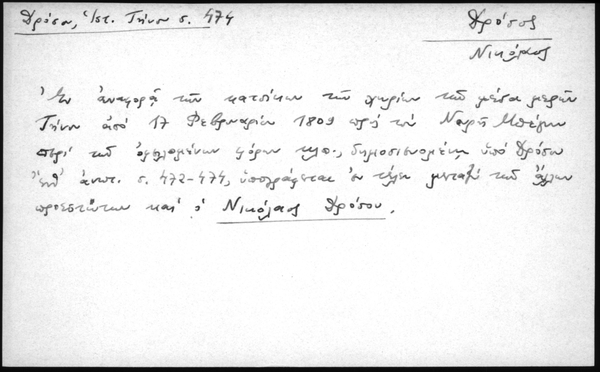 Δρόσου, Ἱστ. Τήνου σ. 474
Δρόσος
Νικόλαος
Ἐν ἀναφορᾷ τῶν κατοίκων τῶν χωρίων τοῦ μέσα μερῶν
Τήνου ἀπό 17 Φεβρουαρίου 1809 πρός τόν Μπέην
περί τῶν ὀφειλομένων φόρων κλπ., δημοσιευομένῃ ὑπό Δρόσου
ἔνθ' ἀνωτ. σ. 472-474, ὑπογράφεται ἐν τέλει μεταξύ τῶν ἄλλων
προεστώτων καί ὁ Νικόλαος Δρόσου.